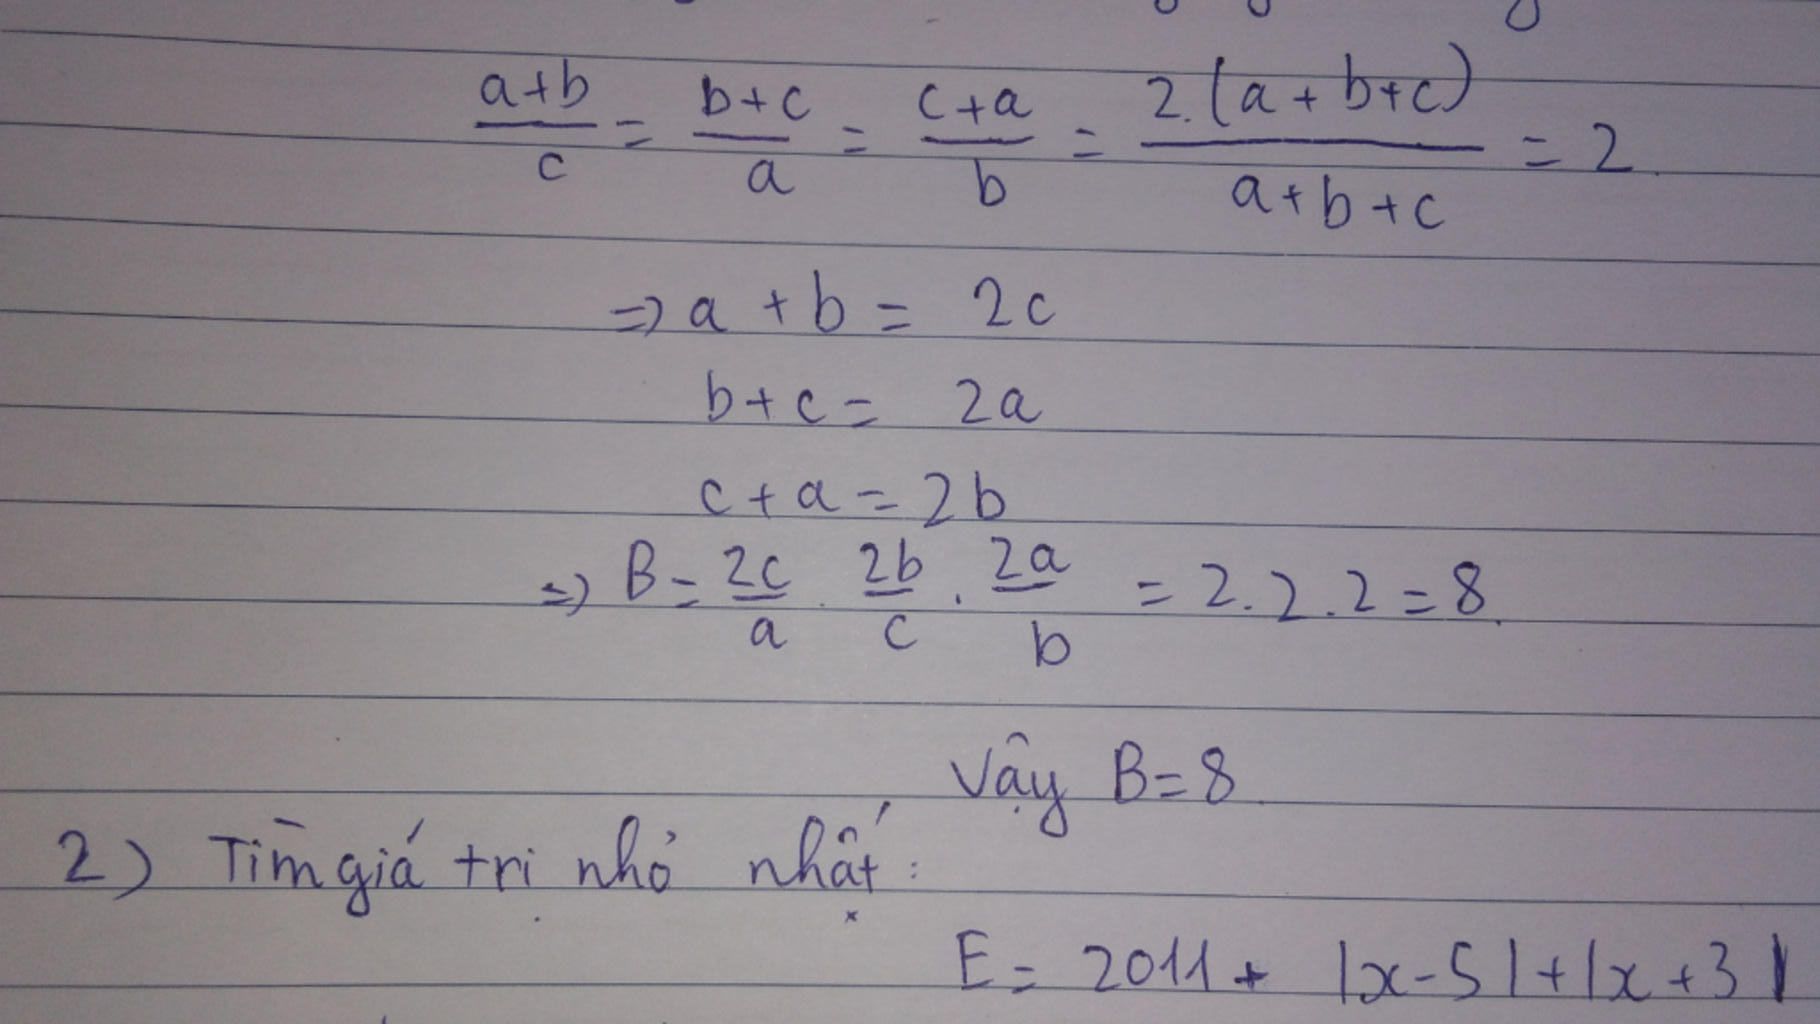 a+b/c = b+c/a = c+a/b = 2.(a+b+c)/a+b+c = 2
=> a + b = 2c
b+c = 2a
c+a = 2b
=> B = 2c/a . 2b/c . 2a/b = 2.2.2 = 8.
Vậy B=8.
2) Tìm giá trị nhỏ nhất:
E = 2011 + |x-5|+|x+3|